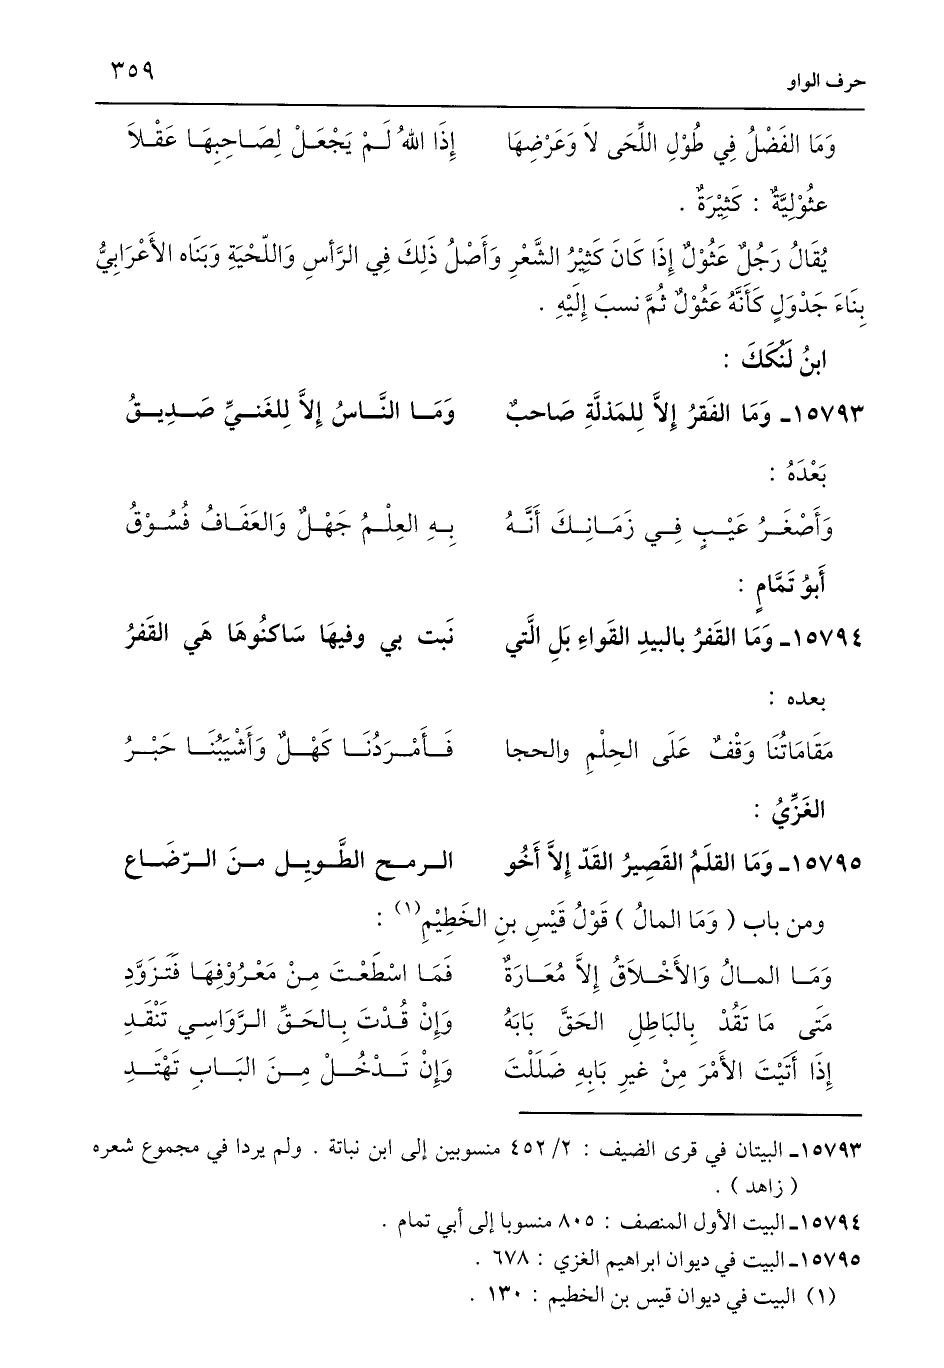 حرف الواو ٣٥٩
وَمَا الفَضْلُ فِي طُوْلِ اللِّحَى لاَ وَعَرْضِهَا إِذَا اللهُ لَمْ يَجْعَلْ لِصَاحِبِهَا عَقْلاَ
عثُوْلِيَّةٌ : كَثِيْرَةٌ .
يُقَالُ رَجُلٌ عَثُوْلٌ إِذَا كَانَ كَثِيْرُ الشَّعْرِ وَأَصْلُ ذَلِكَ فِي الرَّأسِ وَاللّحْيَةِ وَبَنَاه الأَعْرَابِيُّ
بِنَاءَ جَدْوَلٍ كَأَنَّهُ عَثُوْلٌ ثُمَّ نسبَ إِلَيْهِ .
ابنُ لَنْكَكَ :
١٥٧٩٣ـ وَمَا الفَقرُ إِلاَّ لِلمَذلَّةِ صَاحبٌ وَمَا النَّاسُ إِلاَّ لِلغَنيِّ صَدِيقُ
بَعْدَهُ :
وَأَصْغَرُ عَيْبٍ فِي زَمَانِكَ أَنَّهُ بِهِ العِلْمُ جَهْلٌ وَالعَفَافُ فُسُوْقُ
أَبوُ تَمَّامٍ :
١٥٧٩٤ـ وَمَا القَفرُ بالبيدِ القَواءِ بَلِ الَّتي نَبت بي وفيهَا سَاكنُوهَا هَي القَفرُ
بعده :
مَقَامَاتُنَا وَقْفٌ عَلَى الحِلْمِ والحجا فَأَمْرَدُنَا كَهْلٌ وَأَشْيَبُنَا حَبْرُ
الغَزِّيُّ :
١٥٧٩٥ـ وَمَا القلَمُ القَصيرُ القَدّ إِلاَّ أَخُو الرمح الطَّويل منَ الرّضَاع
ومن باب ( وَمَا المالُ ) قَوْلُ قَيْسِ بنِ الخَطِيْمِ(١) :
وَمَا المالُ وَالأَخْلاَقُ إِلاَّ مُعَارَةٌ فَمَا اسْطَعْتَ مِنْ مَعْرُوْفِهَا فَتَزَوَّدِ
مَتَى مَا تَقُدْ بِالبَاطِلِ الحَقَّ بَابَهُ وَإِنْ قُدْتَ بِالحَقِّ الرَّوَاسِي تَنْقَدِ
إِذَا أَتَيْتَ الأَمْرَ مِنْ غيرِ بَابِهِ ضَلَلْتَ وَإِنْ تَدْخُلْ مِنَ البَابِ تَهْتَدِ
١٥٧٩٣ـ البيتان في قرى الضيف : ٢/ ٤٥٢ منسوبين إلى ابن نباتة . ولم يردا في مجموع شعره
( زاهد ) .
١٥٧٩٤ـ البيت الأول المنصف : ٨٠٥ منسوبا إلى أبي تمام .
١٥٧٩٥ـ البيت في ديوان ابراهيم الغزي : ٦٧٨ .
(١) البيت في ديوان قيس بن الخطيم : ١٣٠ .